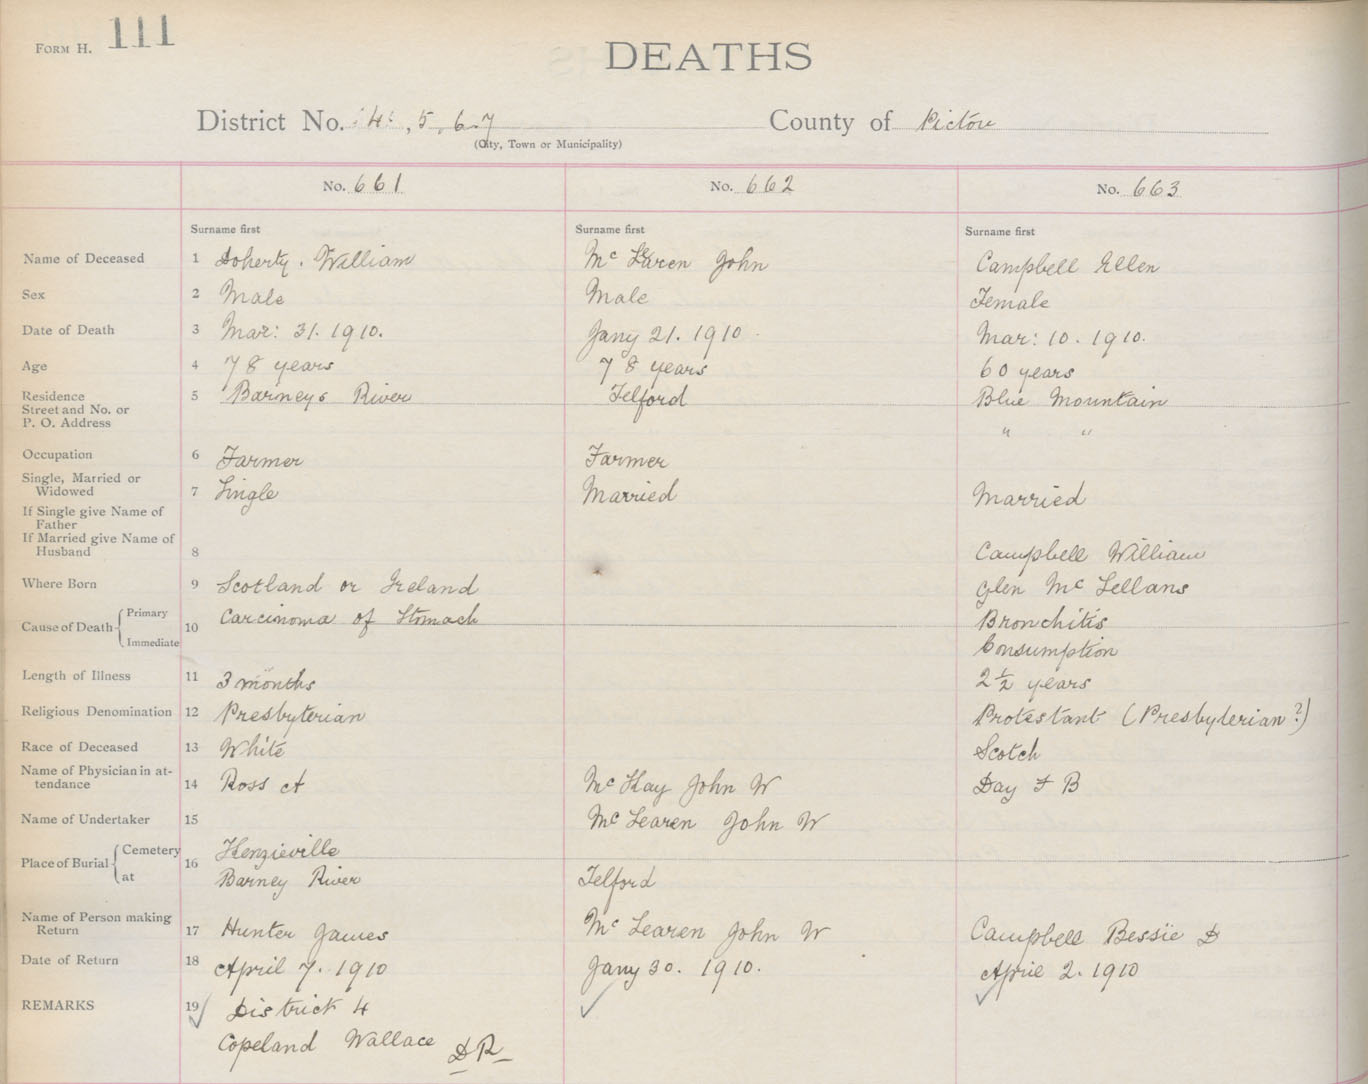 FORM H. 111
DEATHS
District No. 4, 5, 6, 7 County of Pictou
(City, Town or Municipality)
No. 661 No. 662 No. 663
Surname first Surname first Surname first
Name of Deceased 1 Doherty. William Mc Laren John Campbell Ellen
Sex 2 Male Male Female
Date of Death 3 Mar: 31. 1910. Jany 21. 1910 Mar: 10. 1910.
Age 4 78 years 78 years 60 years
Residence 5 Barneys River Telford Blue Mountain
Street and No. or
P. O. Address " "
Occupation 6 Farmer Farmer
Single, Married or
Widowed 7 Single Married Married
If Single give Name of
Father
If Married give Name of
Husband 8 Campbell William
Where Born 9 Scotland or Ireland Glen Mc Lellans
Cause of Death Primary 10 Carcinoma of Stomach Bronchitis
Immediate Consumption
Length of Illness 11 3 months 2½ years
Religious Denomination 12 Presbyterian Protestant (Presbyterian?)
Race of Deceased 13 White Scotch
Name of Physician in at-
tendance 14 Ross A Mc Kay John W Day F B
Name of Undertaker 15 Mc Learen John W
Place of Burial Cemetery 16 Kenzieville
at Barney River Telford
Name of Person making
Return 17 Hunter James Mc Learen John W Campbell Bessie D
Date of Return 18 April 7. 1910 Jany 30. 1910. April 2. 1910
REMARKS 19 District 4
Copeland Wallace DR